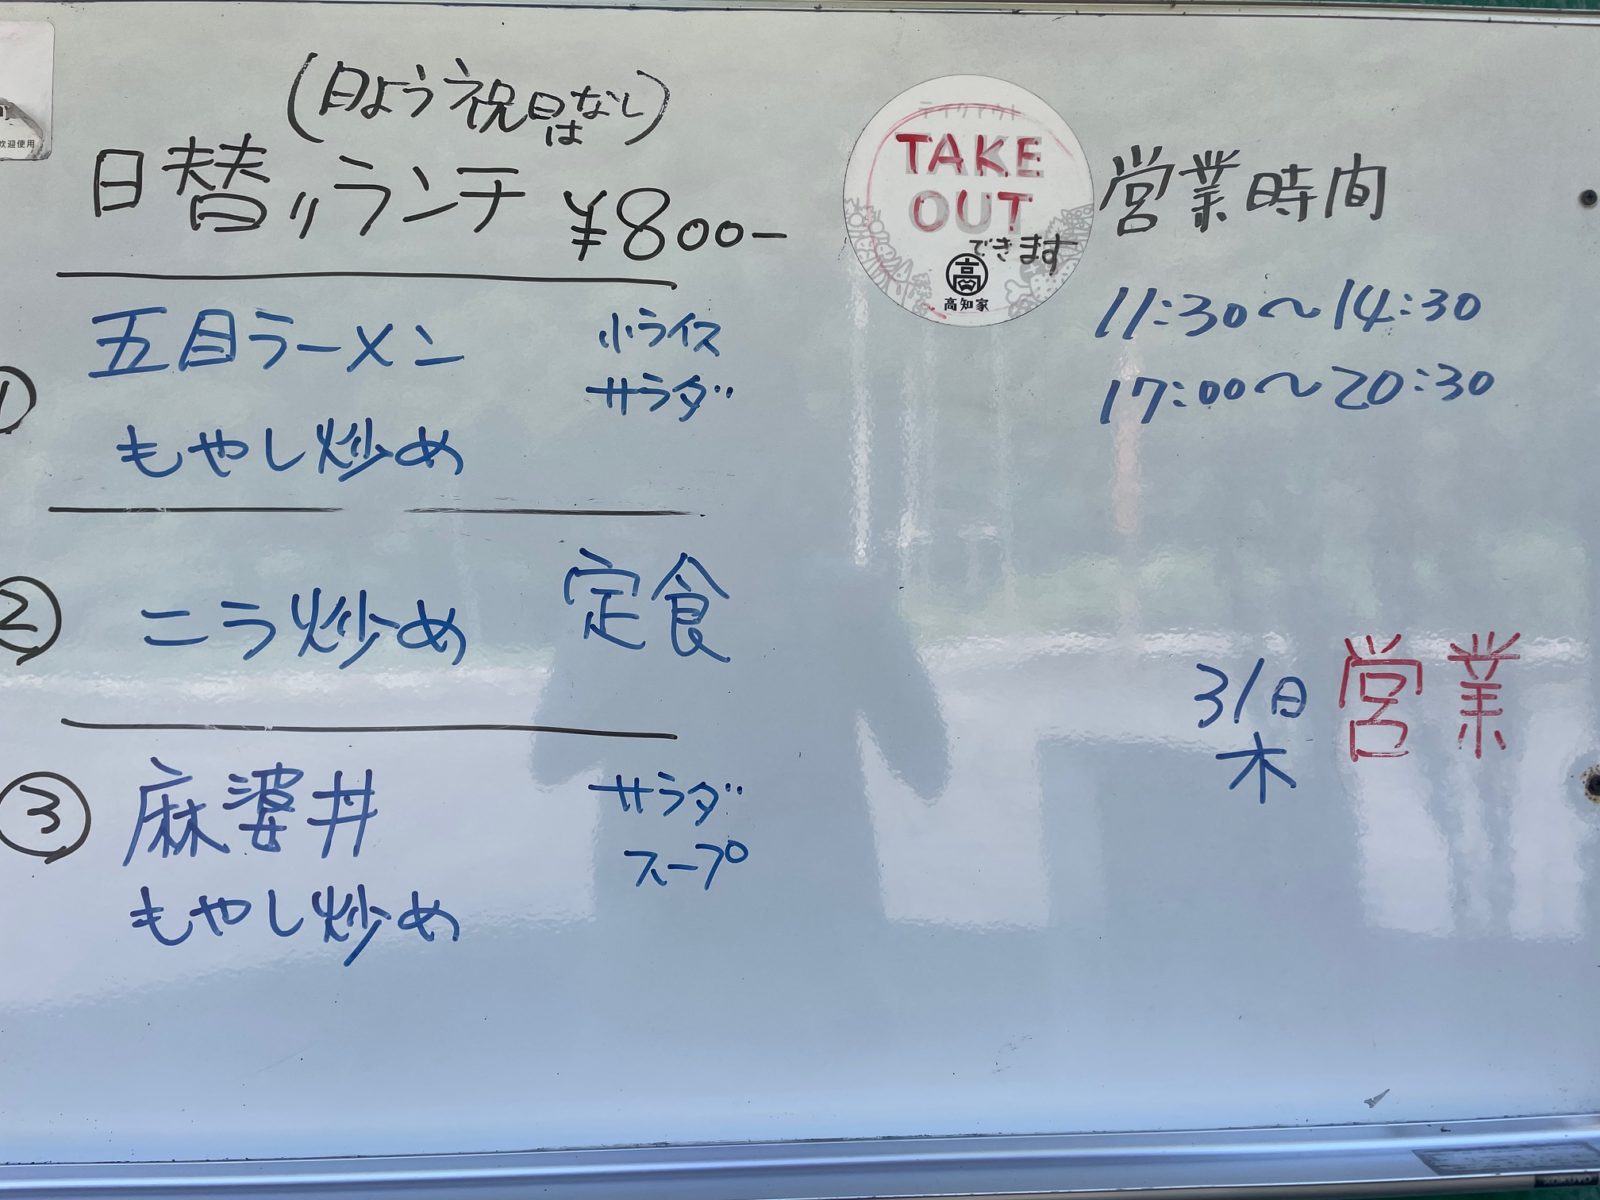 (日よう祝日はなし)
日替りランチ ¥800-
① 五目ラーメン 小ライス
サラダ
もやし炒め
② ニラ炒め 定食
③ 麻婆丼 サラダ
スープ
もやし炒め
TAKE
OUT
できます
高
高知家
営業時間
11:30～14:30
17:00～20:30
31日 営業
木
歓迎使用
KOKUYO